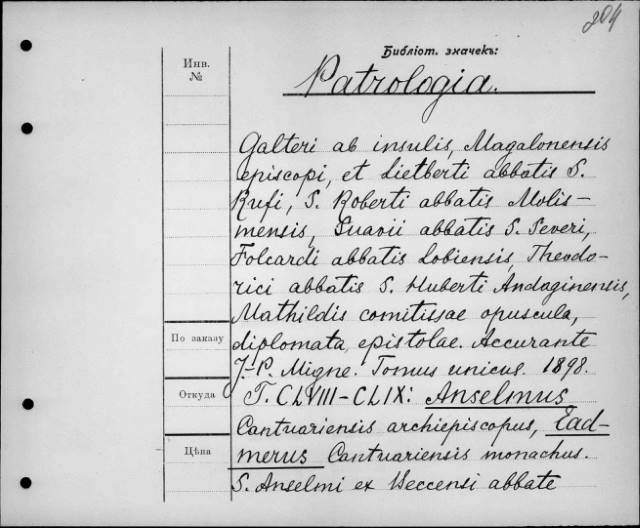 204
Библіот. значекъ:
Инв.
№
Patrologia.
Galteri ab insulis, Magalonensis
episcopi, et Lietberti abbatis S.
Rufi, S. Roberti abbatis Molis-
mensis, Suavii abbatis S. Severi,
Folcardi abbatis Lobiensis, Theodo-
rici abbatis S. Huberti Andaginensis,
Mathildis comitissae opuscula,
По заказу
diplomata, epistolae. Accurante
J.-P. Migne. Tomus unicus. 1898.
Откуда
T. CLVIII-CLIX: Anselmus
Cantuariensis archiepiscopus, Ead-
Цѣна
merus Cantuariensis monachus.
S. Anselmi ex Beccensi abbate